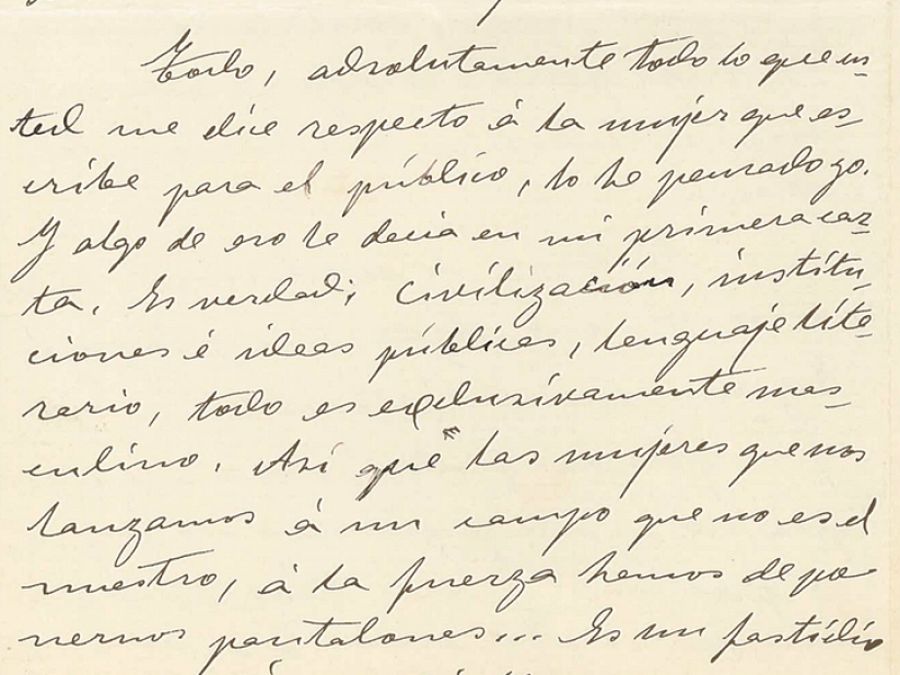 Todo, absolutamente todo lo que us-
ted me dice respecto á la mujer que es-
cribe para el público, lo he pensado yo.
Y algo de eso le decia en mi primera car-
ta. Es verdad; civilización, institu-
ciones é ideas públicas, lenguaje lite-
rario, todo es exclusivamente mas-
culino. Así que las mujeres que nos
lanzamos á un campo que no es el
nuestro, á la fuerza hemos de po-
nernos pantalones... Es un fastidio